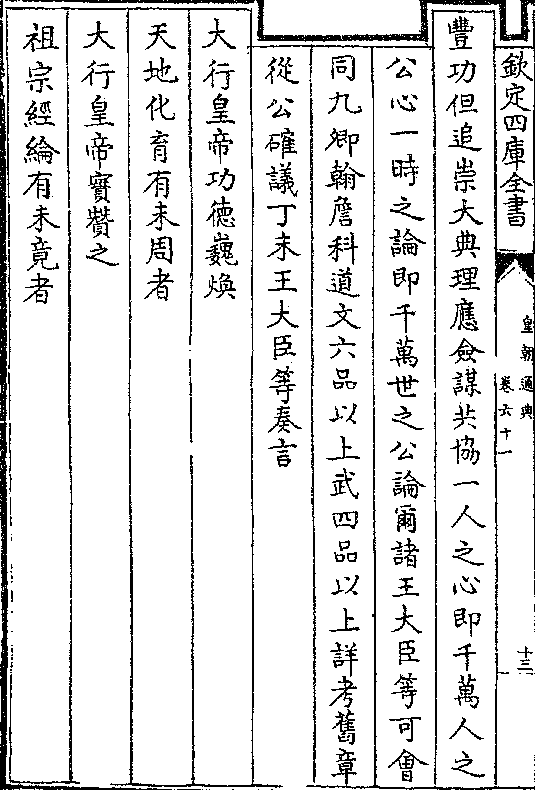 欽定四庫全書
皇朝通典
卷六十一
十三
豐功但追崇大典理應僉謀共協一人之心即千萬人之
公心一時之論即千萬世之公論爾諸王大臣等可會
同九卿翰詹科道文六品以上武四品以上詳考舊章
從公確議丁未王大臣等奏言
大行皇帝功德巍煥
天地化育有未周者
大行皇帝實贊之
祖宗經綸有未竟者